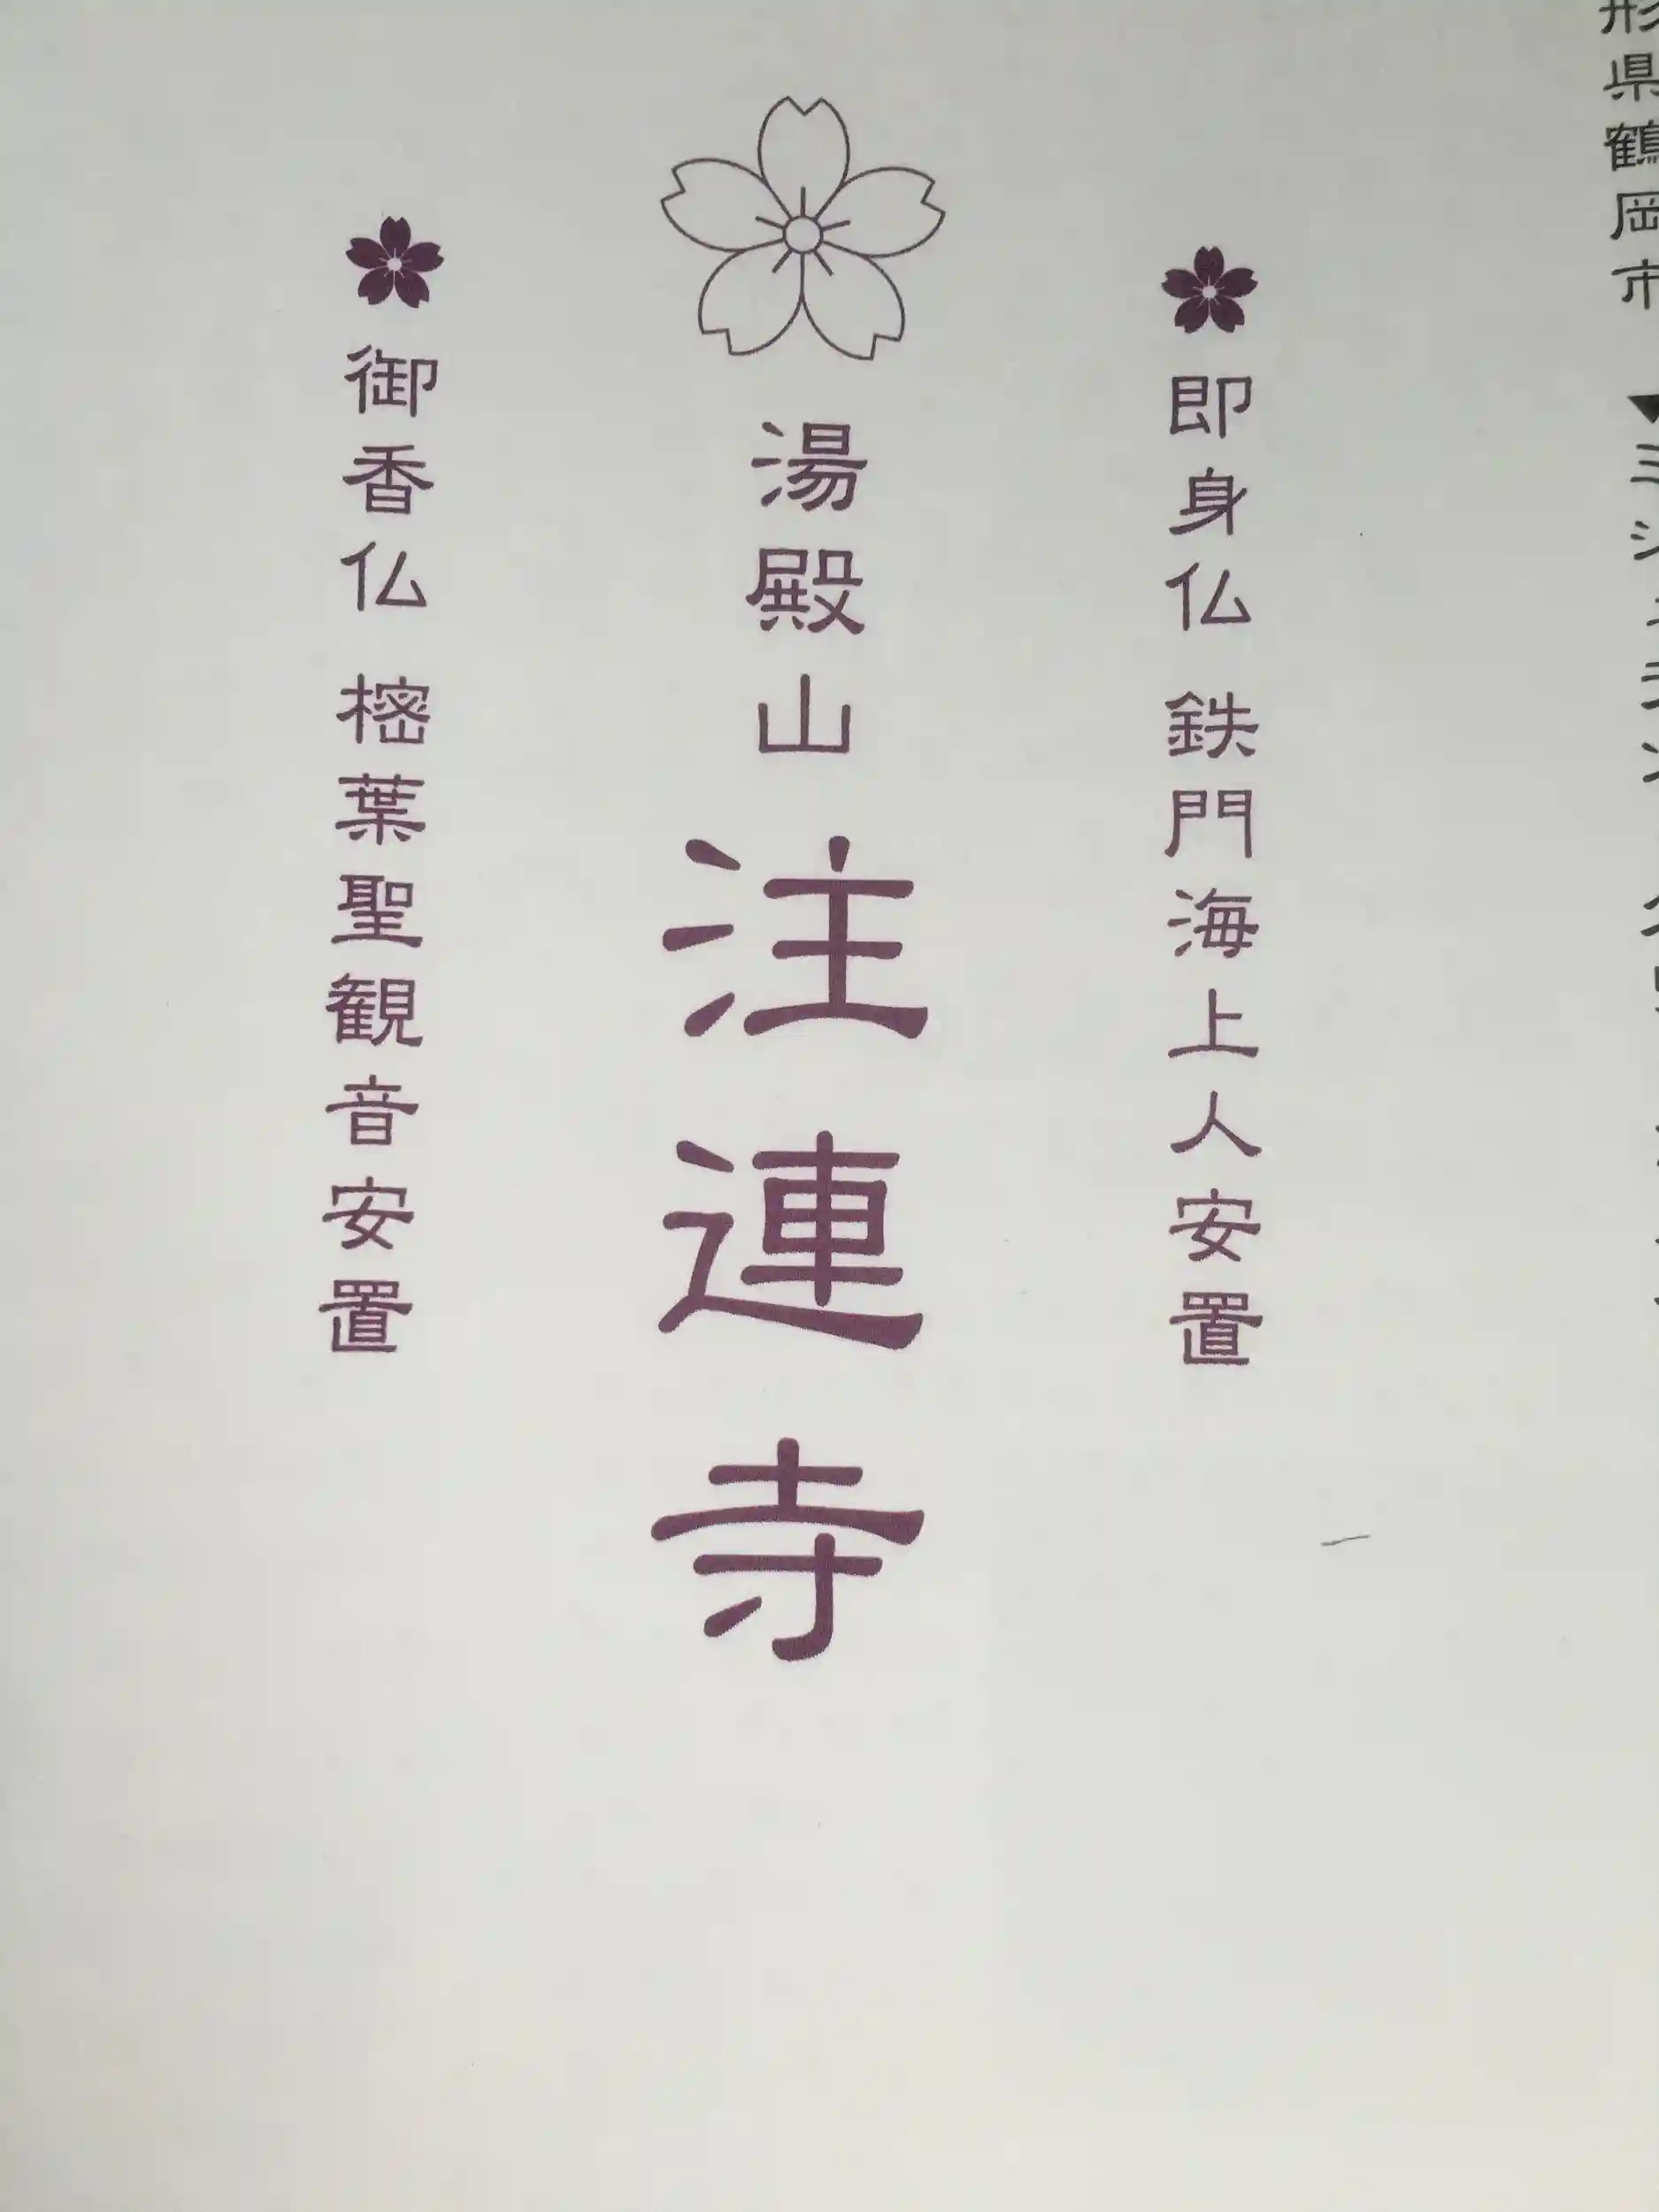 形県鶴岡市
即身仏 鉄門海上人安置
湯殿山 注連寺
御香仏 樒葉聖観音安置